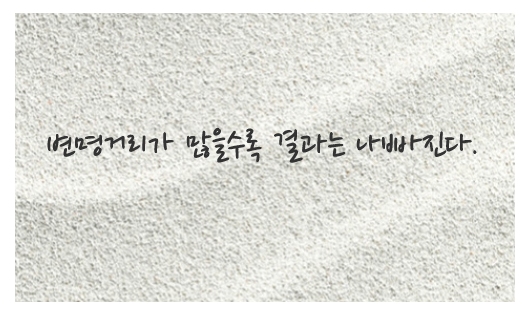 변명거리가 많을수록 결과는 나빠진다.